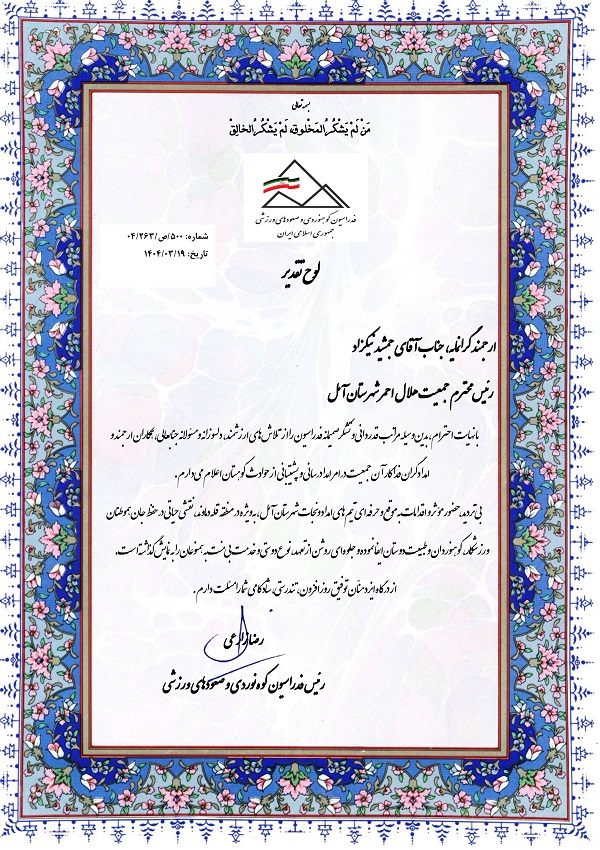 بسمه تعالی
مَنْ لَمْ یَشْکُرِ المَخْلوق، لَمْ یَشْکُرِ الخالِق
فدراسیون کوهنوردی و صعودهای ورزشی
جمهوری اسلامی ایران
شماره: ۵۰۰/ص/۰۴/۲۶۳
تاریخ: ۱۴۰۴/۰۳/۱۹
لوح تقدیر
ارجمند گرانمایه، جناب آقای جمشید نیکزاد
رئیس محترم جمعیت هلال احمر شهرستان آمل
با نهایت احترام، بدین وسیله مراتب قدردانی و تشکر صمیمانه فدراسیون را از تلاش های ارزشمند، دلسوزانه و مسئولانه جنابعالی، همکاران ارجمند و
امدادگران فداکار آن جمعیت در امر امدادرسانی و پشتیبانی از حوادث کوهستان اعلام می دارم.
بی تردید، حضور موثر و اقدامات به موقع و حرفه ای تیم های امداد و نجات شهرستان آمل، به ویژه در منطقه قله دماوند، نقشی حیاتی در حفظ جان هموطنان
ورزشکار، کوهنوردان و طبیعت دوستان ایفا نموده و جلوه ای روشن از تعهد، نوع دوستی و خدمت بی منت به همنوعان را به نمایش گذاشته است.
از درگاه ایزد منان توفیق روزافزون، تندرستی، شادکامی شما را مسئلت دارم.
رضا زارعی
رئیس فدراسیون کوه نوردی و صعودهای ورزشی